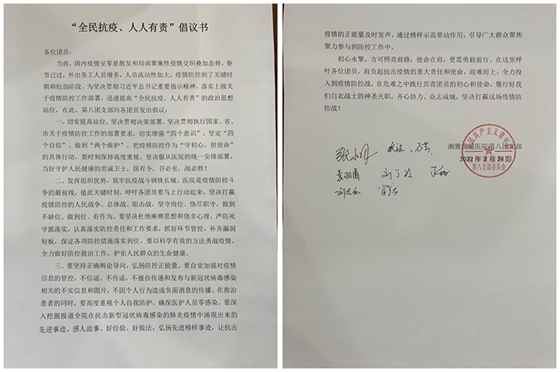 “全民抗疫、人人有责”倡议书
各位团员：
当前，国内疫情呈零星散发和局部聚集性疫情交织叠加态势，春
节已过，外出务工人员增多，人员流动性加大，疫情防控到了关键时
期和较劲阶段。为坚决贯彻习近平总书记重要指示精神，落实上级关
于疫情防控工作部署，迅速提高“全民抗疫，人人有责”的政治思想
站位，在此，第八团支部向各团员发出倡议：
一、切实提高站位，坚决贯彻决策部署。坚决贯彻执行国家、省、
市关于疫情防控工作的部署要求，切实增强“四个意识”、坚定“四
个自信”、做到“两个维护”，把疫情防控作为“守初心、担使命”
的具体行动，要时刻保持高度重视，坚决服从医院的统一安排部署，
当好守护人民健康的忠诚卫士，国有令，召必至，战必胜！
二、发挥组织优势，筑牢抗疫战斗钢铁长城。医院是疫情防控斗
争的最前线，值此关键时刻，呼吁各团员要马上行动起来，坚决打赢
疫情防控的人民战争、总体战、阻击战，坚守岗位、恪尽职守，做到
不缺位、做到位、有作为，要坚决杜绝麻痹思想和侥幸心理，严防死
守抓落实，认真落实防控责任和工作要求，抓好环节管控，补齐漏洞
短板，保证各项防控措施落实到位。要以科学有效的方法勇战疫情，
全力做好防控救治工作，护佑人民群众的生命健康。
三、要坚持正确舆论导向，弘扬防控正能量，要自觉加强对疫情
信息的管控，不信谣、不传谣，不擅自传递和发布与新冠状病毒感染
相关的不实信息和图片，不因个人行为造成负面消息的传播，在救治
患者的同时，要高度重视个人自我防护，确保医护人员零感染。要深
入挖掘报道全院在抗击新型冠状病毒感染的肺炎疫情中涌现出来的
先进事迹、感人故事，好经验、好做法，弘扬先进榜样事迹，让抗击
疫情的正能量及时发声，通过榜样示范带动作用，引导广大群众聚焦
聚力参与到防控工作中。
初心永擎，方可照亮前路；使命在肩，更需勇毅前行。在这里呼
吁各位团员，肩负起抗击疫情的重大责任和使命，迎难而上，全力投
入到疫情防控战，在危难之中践行共青团员的初心和使命，履行好我
们白衣战士的神圣天职，齐心协力、众志成城，坚决打赢这场疫情防
控战！
2022年3月24日
第八支部委员会